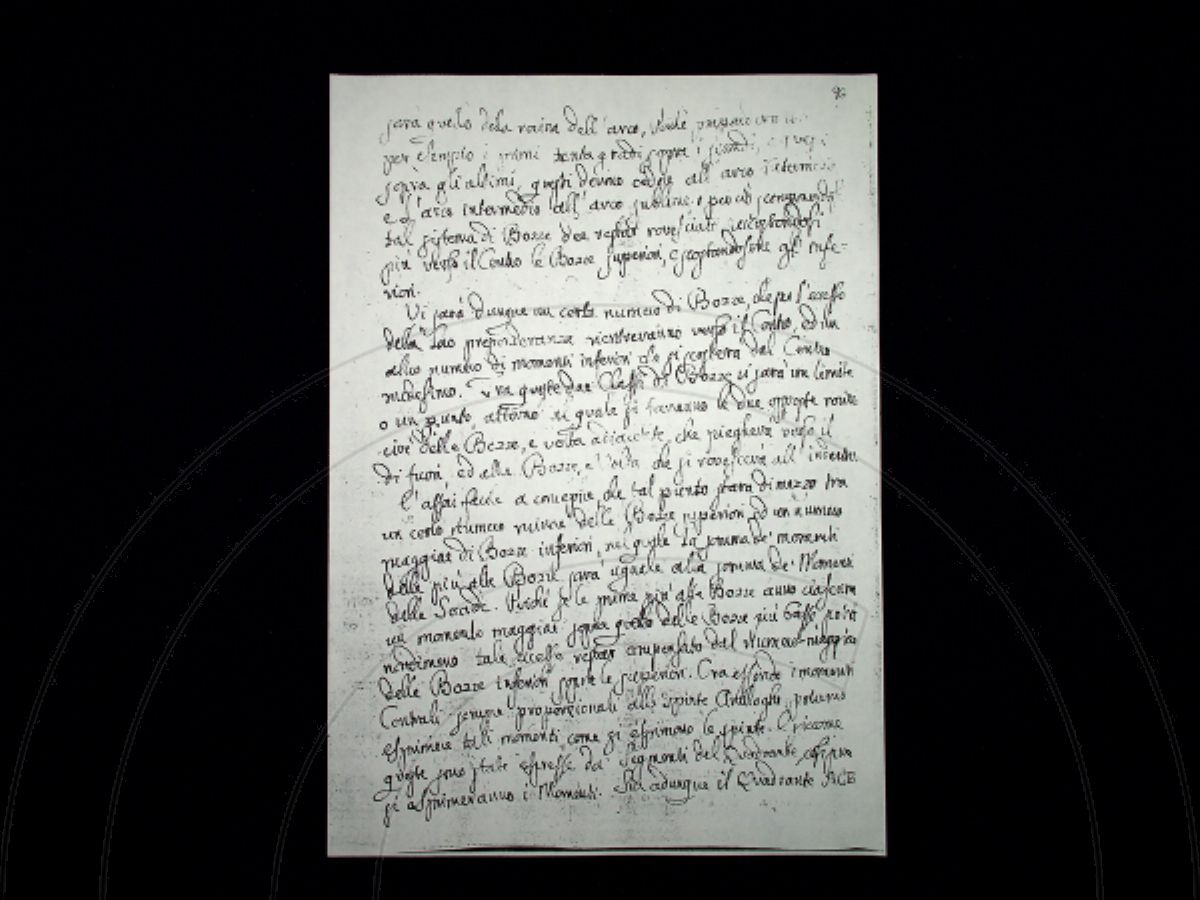 sarà quello dela rovina dell'arco,
per Esempio i primi trenta gradi sopra i
sopra gli altimi, questi devino cedere all'arco
e l'arco intermedio all'arco sublime: e per ciò
tal sistema di Bozze dee restar rovesciato
più verso il Centro le Bozze superiori, e scostandosene gl' infe-
riori.
Vi sarà dunque un certo numero di Bozze, che per l'eccesso
della loro preponderanza rientreranno verso il Centro, ed un
altro numero di momenti inferiori che si scosterà dal Centro
medesimo. Tra queste due Classi di Bozze vi sarà un limite
o un punto, attorno al quale si faranno le due opposte
delle Bozze, e volta che piegherà verso il
di fuori, ed alle Bozze, e Volta che si rovescierà all'indentro.
È assai facile a concepire, che tal punto starà di mezzo tra
un certo Numero minore delle Bozze superiori, ed un numero
maggior di Bozze inferiori, nei quale la somma de' momenti
delle più alte Bozze sarà uguale alla somma de' Momenti
delle Seconde. Perché se le prime più alte Bozze anno ciascuna
un momento maggior sopra quello delle Bozze più basse potrà
nondimeno tale eccesso restar compensato dal Numero maggior
delle Bozze inferiori sopra le superiori. Ora essendo i momenti
Contrali sempre proporzionali alle spinte Analoghe, potranno
esprimersi tali momenti come si esprimono le spinte. E siccome
queste sono state espresse dai Segmenti del Quadrante,
si esprimeranno i Momenti. Sia adunque il Quadrante ACB